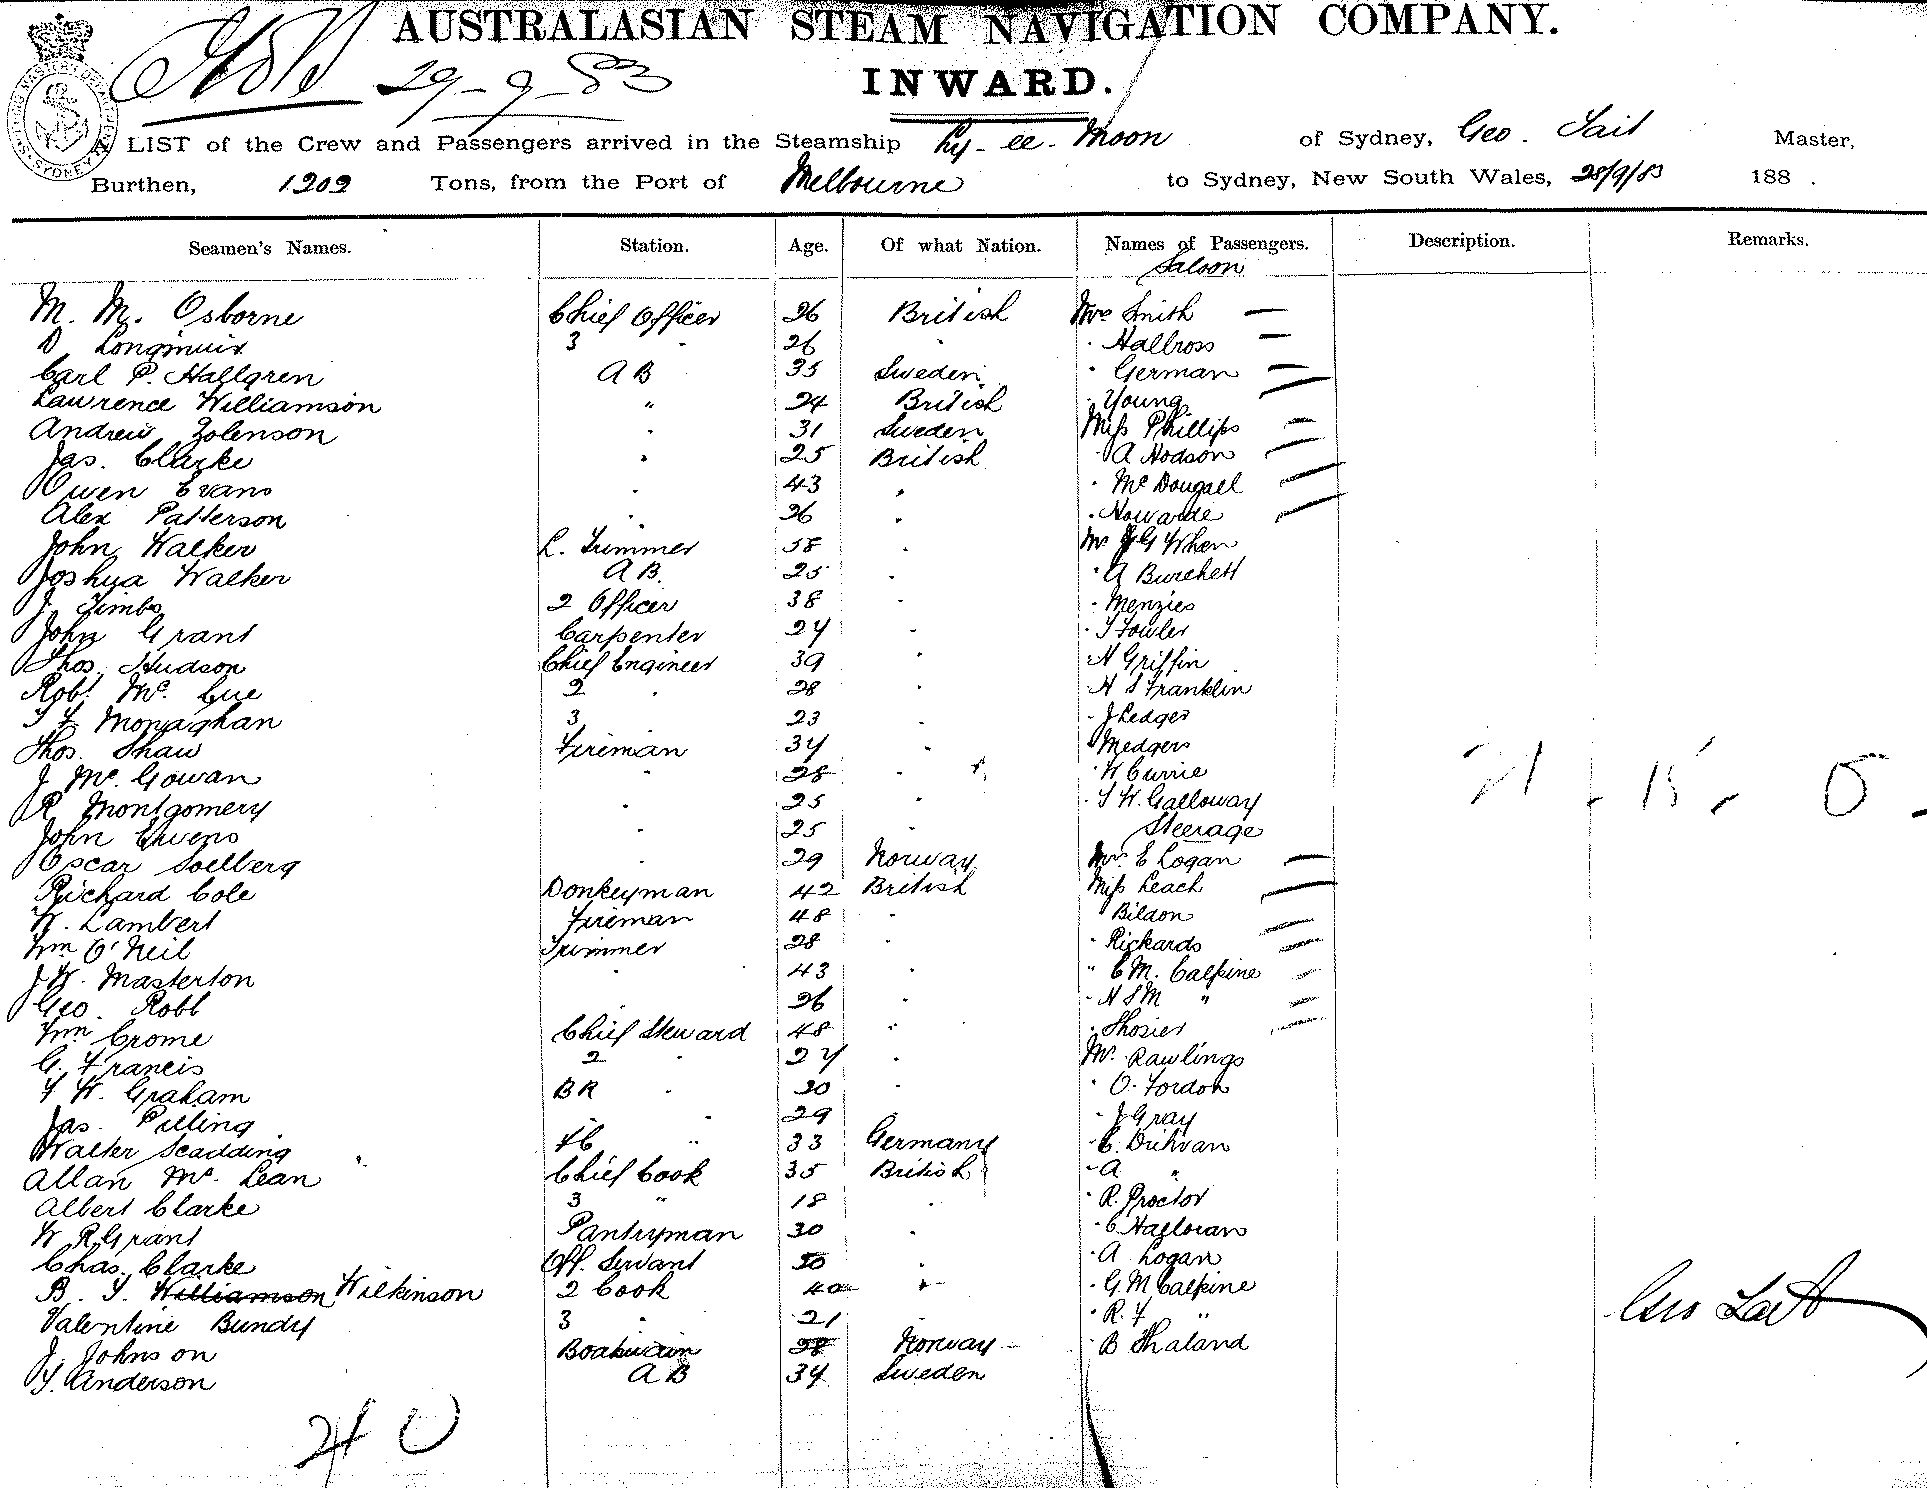 AUSTRALASIAN STEAM NAVIGATION COMPANY.
29-9-83
INWARD.
A LIST of the Crew and Passengers arrived in the Steamship Ly-ee-Moon of Sydney, Geo. Tait Master,
Burthen, 1202 Tons, from the Port of Melbourne to Sydney, New South Wales, 28/9/83 188 .
Seamen's Names. Station. Age. Of what Nation. Names of Passengers. Description. Remarks.
Saloon
M. M. Osborne Chief Officer 26 British Mrs Smith
D Longmuir 3 " 26 " " Hallross
Carl P. Hallgren A B 35 Sweden " German
Lawrence Williamson " 24 British " Young
Andrew Zolenson " 31 Sweden Miss Phillips
Jas. Clarke " 25 British " A Hodson
Owen Evans " 43 " " McDougall
Alex Patterson " 26 " " Howarde
John Walker L. Trimmer 58 " Mr J G When
Joshua Walker A B. 25 " " A Burchett
J. Timbs 2 Officer 38 " " Menzies
John Grant Carpenter 24 " " T Fowler
Thos. Hudson Chief Engineer 39 " " H Griffin
Robt Mc. Cue 2 " 28 " " H S Franklin
T F Monaghan 3 23 " " J Ledger
Thos. Shaw Fireman 34 " " Medgers
J Mc. Gowan " 28 " " W Currie
R Montgomery " 25 " " T W. Galloway
John Ewens " 25 " Steerage
Oscar Soelberg " 29 Norway Mrs E Logan
Richard Cole Donkeyman 42 British Miss Leach
W. Lambert Fireman 48 " " Bildon
Wm O'Neil Trimmer 28 " " Rickards
J. W. Masterton " 43 " " E M. Calpine
Geo. Robb " 26 " " H S M "
Wm Crome Chief Steward 48 " " Shosier
G. Francis 2 " 24 " Mr. Rawlings
F W. Graham BR " 30 " " O. Fordon
Jas. Pilling " 29 " J Gray
Walter Scadding FC " 33 Germany " C. Drihvan
Allan Mc. Lean Chief Cook 35 British " A "
Albert Clarke 3 " 18 " " R. Proctor
W R Grant Pantryman 30 " " C Halloran
Chas. Clarke Off. Servant 50 " " A Logan
B. T. Williamson Wilkinson 2 Cook 40 " " G. M Calpine
Valentine Bundy 3 " 21 " " R. F "
J. Johnson Boatswain 28 Norway " B Thaland
Y. Anderson A B 34 Sweden
21 . 15 . 0 .
Geo Tait
40